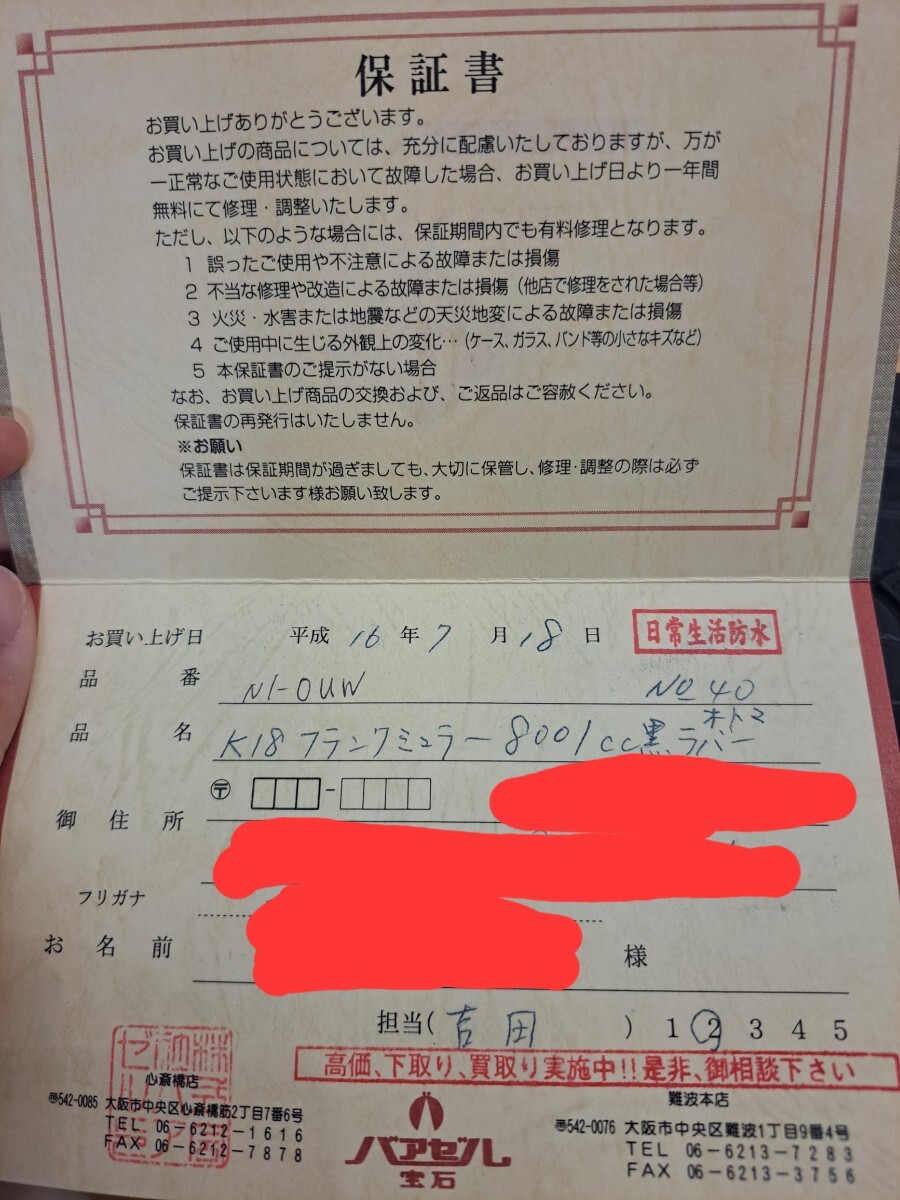 保証書
お買い上げありがとうございます。
お買い上げの商品については、充分に配慮いたしておりますが、万が
一正常なご使用状態において故障した場合、お買い上げ日より一年間
無料にて修理・調整いたします。
ただし、以下のような場合には、保証期間内でも有料修理となります。
1 誤ったご使用や不注意による故障または損傷
2 不当な修理や改造による故障または損傷（他店で修理をされた場合等）
3 火災・水害または地震などの天災地変による故障または損傷
4 ご使用中に生じる外観上の変化…（ケース、ガラス、バンド等の小さなキズなど）
5 本保証書のご提示がない場合
なお、お買い上げ商品の交換および、ご返品はご容赦ください。
保証書の再発行はいたしません。
※お願い
保証書は保証期間が過ぎましても、大切に保管し、修理・調整の際は必ず
ご提示下さいます様お願い致します。
お買い上げ日 平成 16 年 7 月 18 日 日常生活防水
品番 N1-OUW No 40
オトマ
品名 K18 フランクミュラー 8001 cc 黒 ラバー
〒 -
御住所
フリガナ
お名前 様
担当( 吉田 ) 1 2 3 4 5
高価、下取り、買取り実施中!!是非、御相談下さい
心斎橋店
〒542-0085 大阪市中央区心斎橋筋2丁目7番6号
TEL 06-6212-1616
FAX 06-6212-7878
バアゼル
宝石
難波本店
〒542-0076 大阪市中央区難波1丁目9番4号
TEL 06-6213-7283
FAX 06-6213-3756